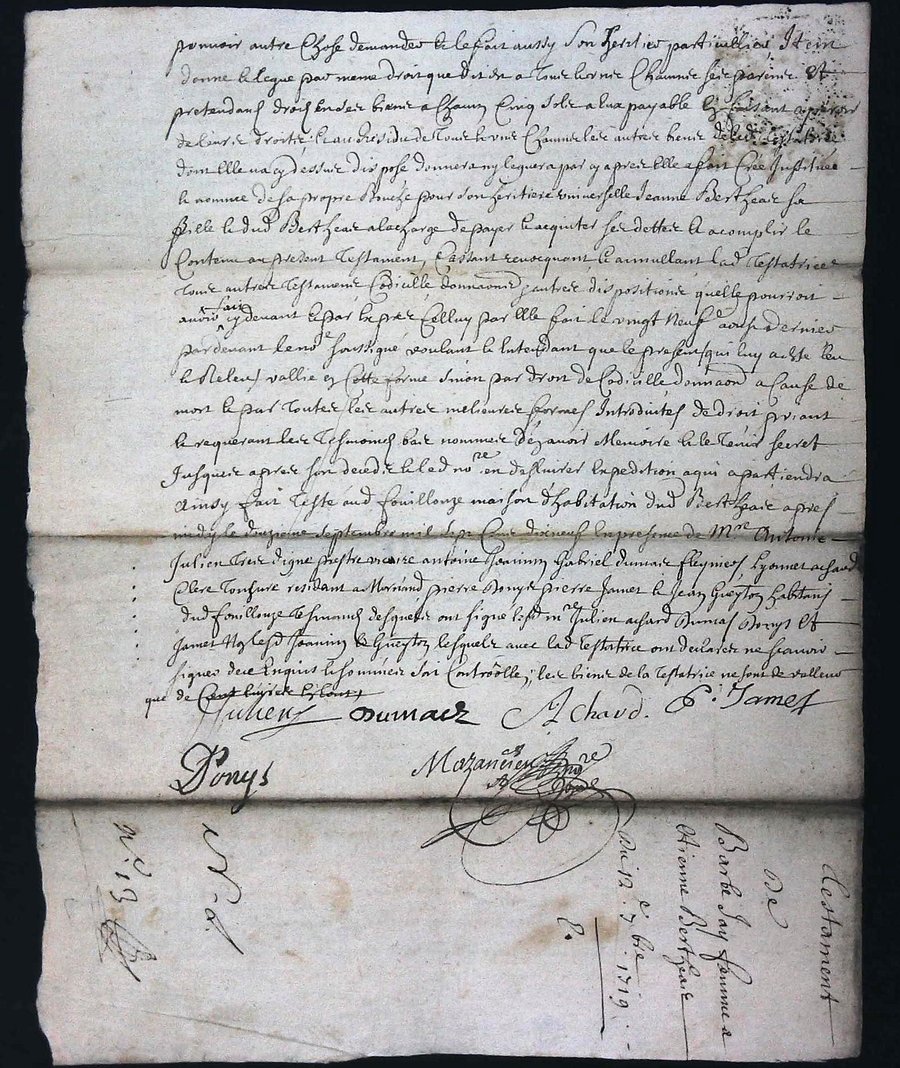 pouvoir autre Chose demander & le fait aussy son heritier particullier, Item
donne & legue par meme droit que dit est a tous les nes Chacuns ses parens et
pretendants droit en ses biens a Chacun Cinq sols a eux payable
de leurs droits & au Residu de tous les nes Chacuns les autres biens de lad. Testatrice
dont Elle n'a cy dessus dispose donnera ny leguera par cy apres elle a fait Crée Institué
& nomme de sa propre Bouche pour son heritiere universelle Jeanne Berthear sa
fille & dud Berthear a la charge de payer & acquiter ses dettes & acomplir le
Contenu au present Testament, Cassant revocquant & annullant lad Testatrice
Tous autres Testaments Codicille donnaons & autres dispositions qu'elle pourroit
avoir fait cy devant & par Expres Celluy par Elle fait le vingt Neufe aoust dernier
pardevant le nore soussigné voulant & Entendant que le present, qui luy a este leu
& Releu, vallie en Cette forme sinon par droit de Codicille donnaon a Cause de
mort & par toutes les autres melieures formes Introduites de droit priant
& requerant les Tesmoins bas nommes d'en avoir Memoire & le tenir secret
Jusques apres son deceds & led nore en deslivrer Expedition a qui apartiendra
Ainsy fait Teste aud fouillouze maison d'habitation dud Berthear apres
midy le douzieme septembre mil sept Cens dixneuf En presence de Mre Antoine
Julien Tres digne prestre vicaire antoine Jeannin Gabriel dumas fleynies, Lyonnet achard
Clerc Tonsure residant a Mornand pierre Ponys pierre Jamet & Jean Gueyton habitans
dud fouillouze tesmoins desquels ont signé led. mre Julien achard Dumas Ponys et
Jamet Non lesd Jeannin & Gueyton lesquels avec lad testatrice ont declares ne scavoir
signer de ce Enquis & sommes soit Controolle; les biens de la Testatrice ne sont de valleur
que de Cent
Julien Dumas Achard. P. Jamet
Ponys Mazancieu nore
Testament
de
Barbe Jay femme a
etienne Berthear
Du 12.e 7bre 1719.
2.
N. d.
n.o 13